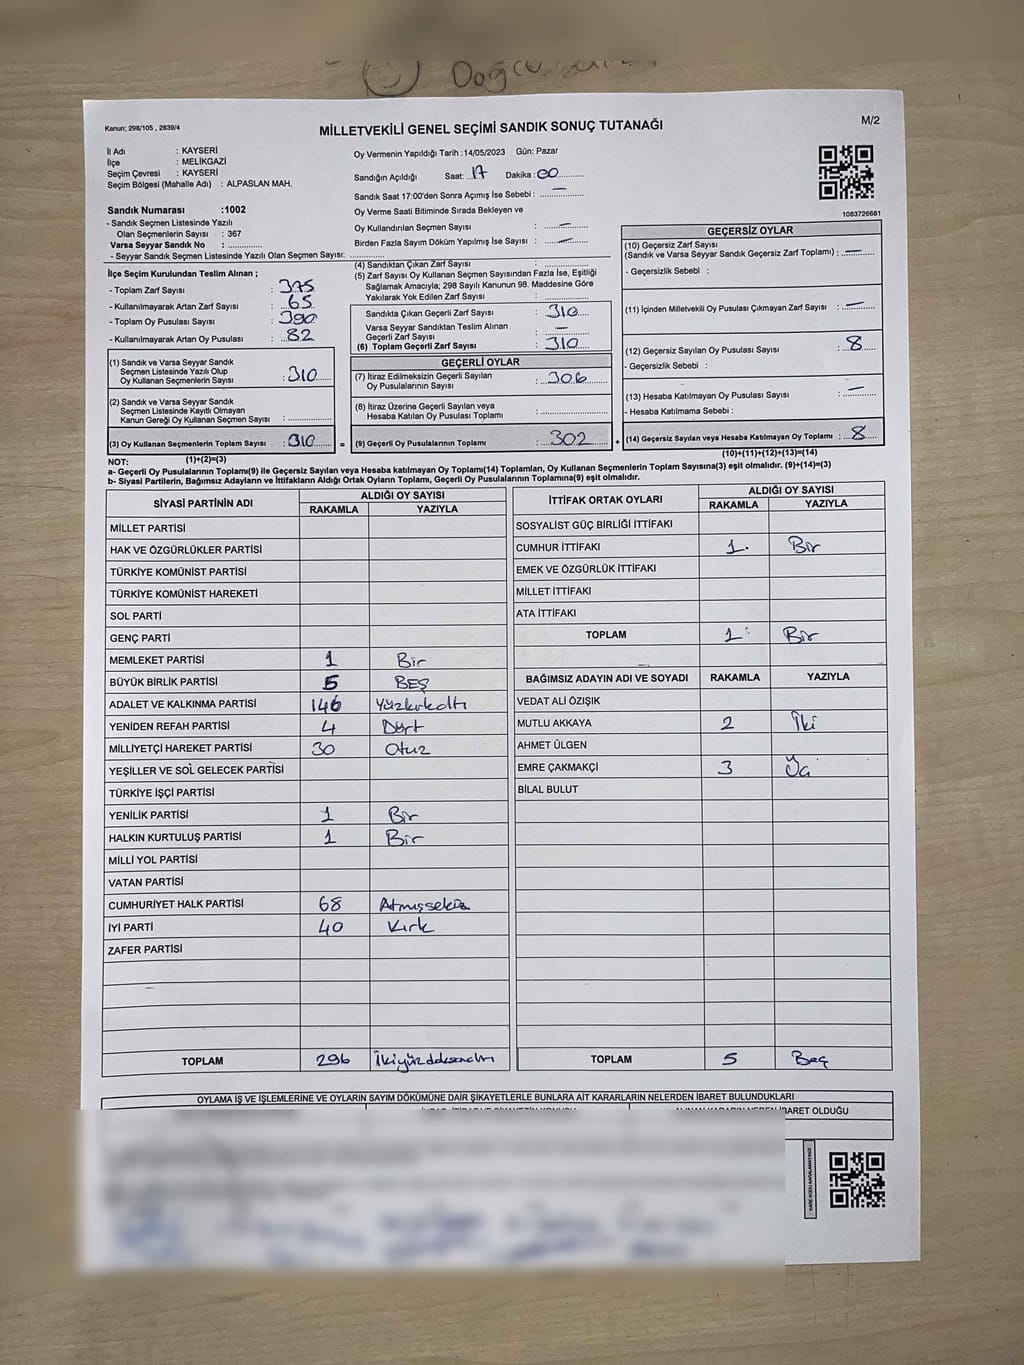 Kanun; 298/105 , 2839/4
MİLLETVEKİLİ GENEL SEÇİMİ SANDIK SONUÇ TUTANAĞI
M/2
İl Adı : KAYSERİ
İlçe : MELİKGAZİ
Seçim Çevresi : KAYSERİ
Seçim Bölgesi (Mahalle Adı) : ALPASLAN MAH.
Sandık Numarası :1002
- Sandık Seçmen Listesinde Yazılı
Olan Seçmenlerin Sayısı : 367
Varsa Seyyar Sandık No : ..............
- Seyyar Sandık Seçmen Listesinde Yazılı Olan Seçmen Sayısı: ..............
Oy Vermenin Yapıldığı Tarih :14/05/2023 Gün: Pazar
Sandığın Açıldığı Saat: 17 Dakika : 00
Sandık Saat 17:00'den Sonra Açımış İse Sebebi : —
Oy Verme Saati Bitiminde Sırada Bekleyen ve
Oy Kullandırılan Seçmen Sayısı : —
Birden Fazla Sayım Döküm Yapılmış İse Sayısı : —
1083726681
İlçe Seçim Kurulundan Teslim Alınan ;
- Toplam Zarf Sayısı : 375
- Kullanılmayarak Artan Zarf Sayısı : 65
- Toplam Oy Pusulası Sayısı : 390
- Kullanılmayarak Artan Oy Pusulası : 82
(1) Sandık ve Varsa Seyyar Sandık
Seçmen Listesinde Yazılı Olup
Oy Kullanan Seçmenlerin Sayısı : 310
(2) Sandık ve Varsa Seyyar Sandık
Seçmen Listesinde Kayıtlı Olmayan
Kanun Gereği Oy Kullanan Seçmen Sayısı : ..............
(3) Oy Kullanan Seçmenlerin Toplam Sayısı : 310 =
(1)+(2)=(3)
(4) Sandıktan Çıkan Zarf Sayısı : ..............
(5) Zarf Sayısı Oy Kullanan Seçmen Sayısından Fazla İse, Eşitliği
Sağlamak Amacıyla; 298 Sayılı Kanunun 98. Maddesine Göre
Yakılarak Yok Edilen Zarf Sayısı : ..............
Sandıkta Çıkan Geçerli Zarf Sayısı : 310
Varsa Seyyar Sandıktan Teslim Alınan
Geçerli Zarf Sayısı : —
(6) Toplam Geçerli Zarf Sayısı : 310
GEÇERLİ OYLAR
(7) İtiraz Edilmeksizin Geçerli Sayılan
Oy Pusulalarının Sayısı : 306
(8) İtiraz Üzerine Geçerli Sayılan veya
Hesaba Katılan Oy Pusulası Toplamı : ..............
(9) Geçerli Oy Pusulalarının Toplamı : 302 +
GEÇERSİZ OYLAR
(10) Geçersiz Zarf Sayısı
(Sandık ve Varsa Seyyar Sandık Geçersiz Zarf Toplamı) : —
- Geçersizlik Sebebi :
(11) İçinden Milletvekili Oy Pusulası Çıkmayan Zarf Sayısı : —
(12) Geçersiz Sayılan Oy Pusulası Sayısı : 8
- Geçersizlik Sebebi :
(13) Hesaba Katılmayan Oy Pusulası Sayısı : —
- Hesaba Katılmama Sebebi :
(14) Geçersiz Sayılan veya Hesaba Katılmayan Oy Toplamı : 8
(10)+(11)+(12)+(13)=(14)
NOT:
a- Geçerli Oy Pusulalarının Toplamı(9) ile Geçersiz Sayılan veya Hesaba katılmayan Oy Toplamı(14) Toplamları, Oy Kullanan Seçmenlerin Toplam Sayısına(3) eşit olmalıdır. (9)+(14)=(3)
b- Siyasi Partilerin, Bağımsız Adayların ve İttifakların Aldığı Ortak Oyların Toplamı, Geçerli Oy Pusulalarının Toplamına(9) eşit olmalıdır.
SİYASİ PARTİNİN ADI ALDIĞI OY SAYISI
RAKAMLA YAZIYLA
MİLLET PARTİSİ
HAK VE ÖZGÜRLÜKLER PARTİSİ
TÜRKİYE KOMÜNİST PARTİSİ
TÜRKİYE KOMÜNİST HAREKETİ
SOL PARTİ
GENÇ PARTİ
MEMLEKET PARTİSİ 1 Bir
BÜYÜK BİRLİK PARTİSİ 5 BEŞ
ADALET VE KALKINMA PARTİSİ 146 Yüzkırkaltı
YENİDEN REFAH PARTİSİ 4 Dört
MİLLİYETÇİ HAREKET PARTİSİ 30 Otuz
YEŞİLLER VE SOL GELECEK PARTİSİ
TÜRKİYE İŞÇİ PARTİSİ
YENİLİK PARTİSİ 1 Bir
HALKIN KURTULUŞ PARTİSİ 1 Bir
MİLLİ YOL PARTİSİ
VATAN PARTİSİ
CUMHURİYET HALK PARTİSİ 68 Atmışsekiz
İYİ PARTİ 40 Kırk
ZAFER PARTİSİ
TOPLAM 296
İTTİFAK ORTAK OYLARI ALDIĞI OY SAYISI
RAKAMLA YAZIYLA
SOSYALİST GÜÇ BİRLİĞİ İTTİFAKI
CUMHUR İTTİFAKI 1. Bir
EMEK VE ÖZGÜRLÜK İTTİFAKI
MİLLET İTTİFAKI
ATA İTTİFAKI
TOPLAM 1 Bir
BAĞIMSIZ ADAYIN ADI VE SOYADI RAKAMLA YAZIYLA
VEDAT ALİ ÖZIŞIK
MUTLU AKKAYA 2 İki
AHMET ÜLGEN
EMRE ÇAKMAKÇİ 3 Üç
BİLAL BULUT
TOPLAM 5 Beş
OYLAMA İŞ VE İŞLEMLERİNE VE OYLARIN SAYIM DÖKÜMÜNE DAİR ŞİKAYETLERLE BUNLARA AİT KARARLARIN NELERDEN İBARET BULUNDUKLARI
İBARET OLDUĞU